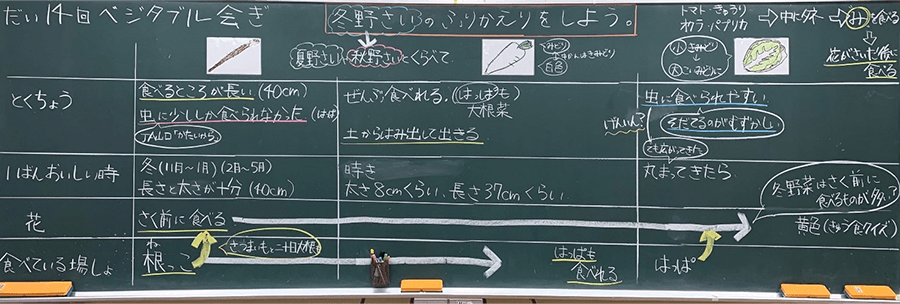 だい14回ベジタブル会ぎ
冬野さいのふりかえりをしよう。
夏野さいや秋野さいとくらべて
みどり
白色
トマト・きゅうり・
オクラ・パプリカ
→中にタネ→みを食べる
花がさいた後に
食べる
小さみどり
大こいみどりに
とくちょう
食べるところが長い(40cm)
虫に少ししか食べられなかった(はっぱ)
ぜんぶ食べれる。(はっぱも)
大根菜
土からはみ出して出きる
虫に食べられやすい
げんいん?
そだてるのがむずかしい
1ばんおいしい時
冬(11月〜1月)(2月〜5月)
長さと太さが十分(40cm)
時き
太さ8cmくらい、長さ37cmくらい
丸まってきたら
冬野菜はさく前に
食べるものが多い?
花
さく前に食べる
黄色(きゅう食クイズ)
食べている場しょ
ね
根っこ
はっぱも
食べれる
はっぱ